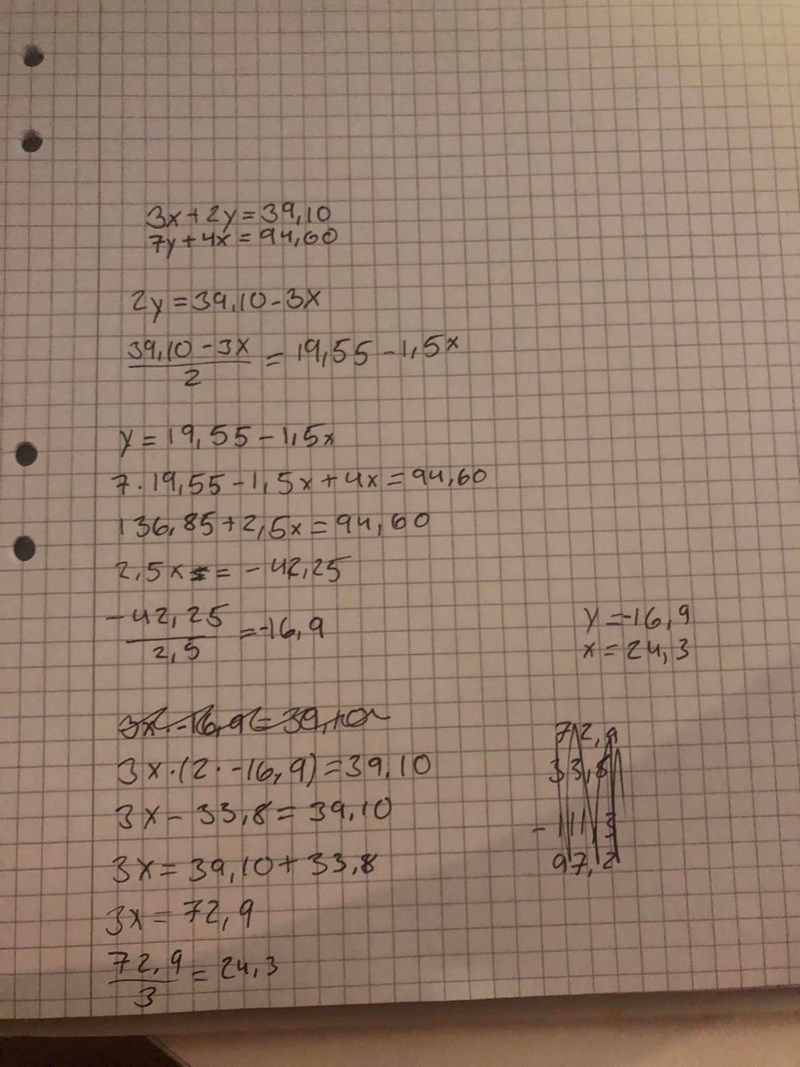 3x+2y=39,10
7y+4x=94,60
2y=39,10-3x
39,10-3x
2
=19,55-1,5x
y=19,55-1,5x
7·19,55-1,5x+4x=94,60
136,85+2,5x=94,60
2,5x=-42,25
-42,25
2,5
=-16,9
y=-16,9
x=24,3
3x·(2·-16,9)=39,10
3x-33,8=39,10
3x=39,10+33,8
3x=72,9
72,9
3
=24,3
72,9
97,2